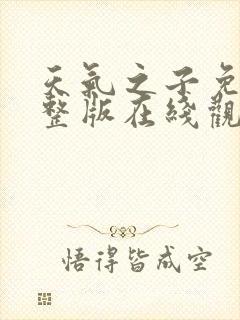 天氣之子免
整版在綫觀
悟得皆成空